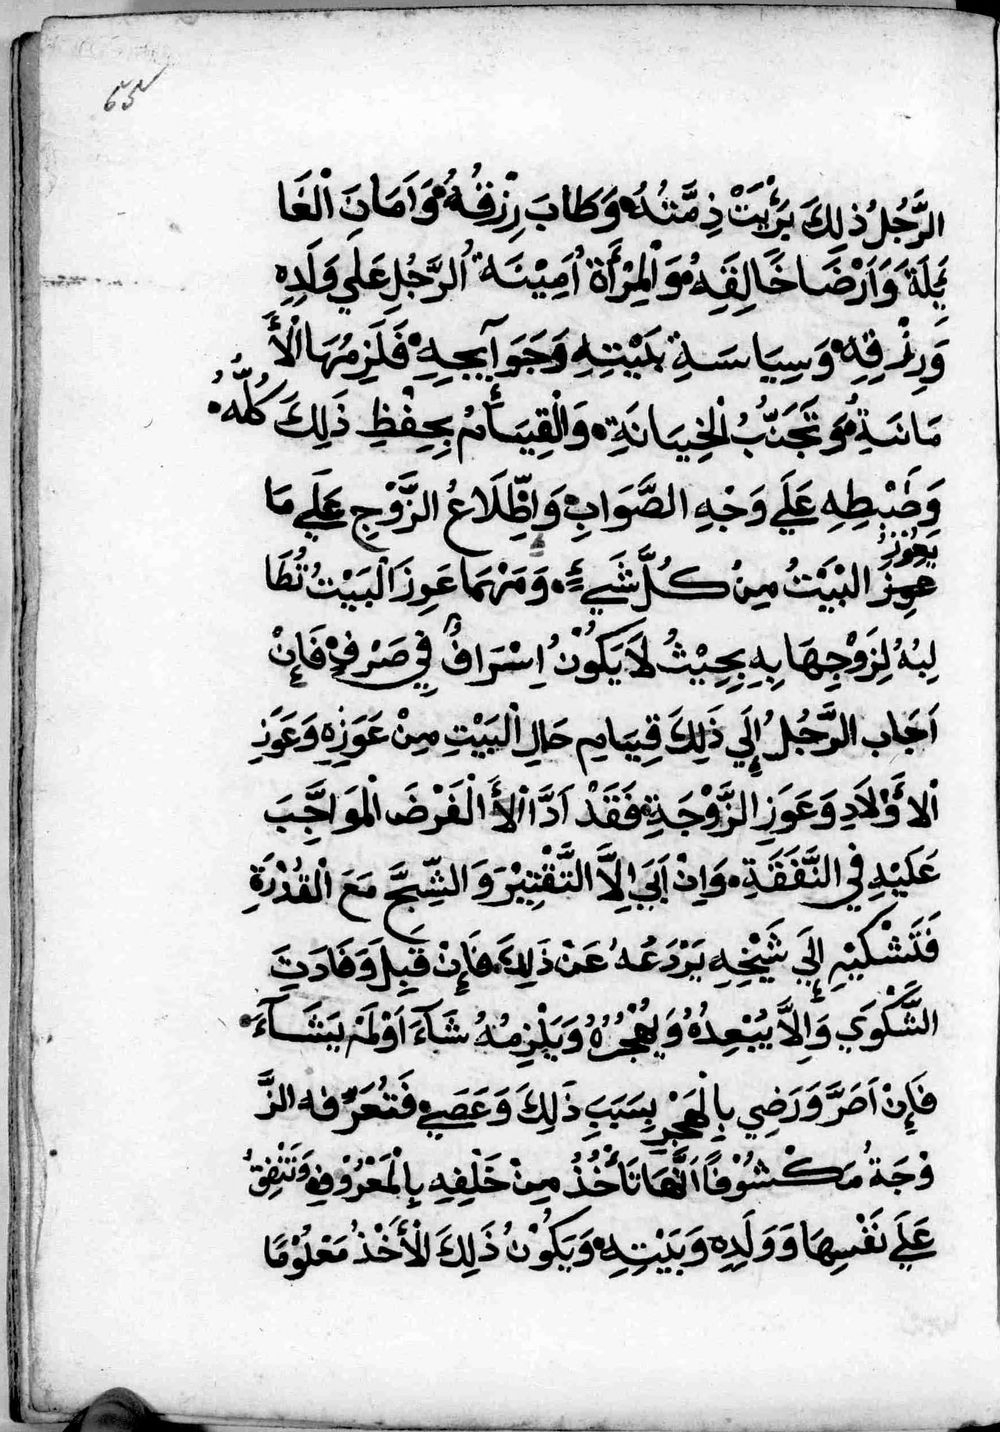 الرَّجُلُ ذٰلِكَ بَرِئَتْ ذِمَّتُهُ وَطَابَ رِزْقُهُ وَاَمَانَ الْعَا
ئِلَةَ وَاَرْضَا خَالِقَهُ وَالْمِرْأَةُ اَمِيْنَةُ الرَّجُلِ عَلَي وَلَدِهِ
وَرِزْقِهِ وَسِيَاسَةِ بَيْتِهِ وَحَوَآيِجِهِ فَلَزِمُهَا الْأَ
مَانَةُ وَتَجَنَّبُ الْخِيَانَةِ وَالْقِيَامُ بِحِفْظِ ذَلِكَ كُلُّهُ
وَضَبْطِهِ عَلَي وَجْهِ الصَّوَابِ وَاِطِّلَاعُ الزَّوْجِ عَلَي مَا
يَعُوْزُ
عوِزُ الْبَيْتُ مِنْ كُلَّ شَيءٍ وَمَهْمَا عَوِزَ الْبَيْتُ تُطَا
لِبُهُ لِزَوْجِهَا بِهِ بِحِيْثُ لَا يَكُوْنُ اِسْرَافٌ فِي صَرْفٍ فَإِنْ
اَجَاب الرَّجُلُ إِلَي ذَلِكَ قِيَامِ حَالِ الْبَيْتِ مِنْ عَوَزِهِ وَعَوَزِ
الْاَوْلَادِ وَعَوَزِ الزَّوْجَةِ فَقَدْ اَدَّا الْأَ الْفَرْضَ الْمَوَاجَّبَ
عَلَيْهِ فِي النَّفَقَةِ وَاِنْ اَبَي اِلاَّ التَّقْتِيْرَ وَالشِّحَّ مَعَ الْقُدْرَةِ
فَتَشْكِيْهِ إِلَي شَيْخِهِ يَرْدَعُهُ عَنْ ذَلِكَ فَإِنْ قَبِلَ وَفَادَتَ
الشَّكْوَي وَاِلاَّ يُبْعِدُهُ وَيَهْجُرُهُ وَيَلْزِمُهُ شَآءَ اَوْلَمْ يَشَآءَ
فَإِنْ اَصَرَّ وَرَضِي بِالْهَجْرِ بِسَبَبِ ذَلِكَ وَعَصَي فَتُعَرِّفه الزَّ
وْجَةُ مَكْشُوْفًا اَنَّهَا تَأْخُذُ مِنْ خَلْفِهِ بِالْمَعْرُوْفِ وَتَنْفِقُ
عَلَي نَفْسِهَا وَوَلَدِهِ وَبَيْتِهِ وَيَكُوْنُ ذَلِكَ الْأَخْذُ مَعْلُوْمًا